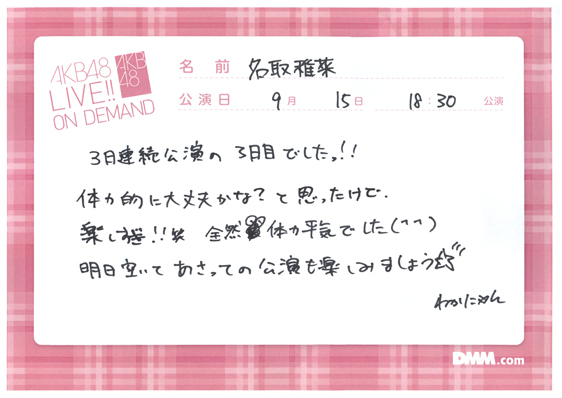 AKB48
LIVE!!
ON DEMAND
AKB
48
名前 名取稚菜
公演日 9月 15日 18:30 公演
3日連続公演の 3日目でしたっ!!
体力的に大丈夫かな?と思ったけど、
楽しすぎ!!笑 全然 体力平気でした(^^)
明日空いて あさっての公演も楽しみましょう
わかにゃん
DMM.com